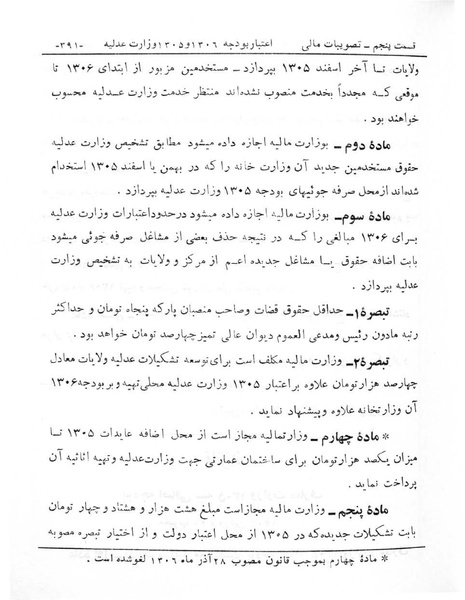 قسمت پنجم ـ تصویبات مالی اعتبار بودجه ۱۳۰۶ و ۱۳۰۵ وزارت عدلیه -۳۹۱-
ولایات تا آخر اسفند ۱۳۰۵ بپردازد ـ مستخدمین مزبور از ابتدای ۱۳۰۶ تا
موقعی که مجدداً بخدمت منصوب نشده‌اند منتظر خدمت وزارت عدلیه محسوب
خواهند بود .
مادهٔ دوم ـ بوزارت مالیه اجازه داده میشود مطابق تشخیص وزارت عدلیه
حقوق مستخدمین جدید آن وزارت خانه را که در بهمن یا اسفند ۱۳۰۵ استخدام
شده‌اند از محل صرفه جوئیهای بودجه ۱۳۰۵ وزارت عدلیه بپردازد .
مادهٔ سوم ـ بوزارت مالیه اجازه داده میشود در حدود اعتبارات وزارت عدلیه
برای ۱۳۰۶ مبالغی را که در نتیجه حذف بعضی از مشاغل صرفه جوئی میشود
بابت اضافه حقوق یا مشاغل جدیده اعم از مرکز و ولایات به تشخیص وزارت
عدلیه بپردازد .
تبصرهٔ ۱ـ حداقل حقوق قضات وصاحب منصبان پارکه پنجاه تومان و حداکثر
رتبه مادون رئیس ومدعی العموم دیوان عالی تمیز چهارصد تومان خواهد بود .
تبصرهٔ ۲ـ وزارت مالیه مکلف است برای توسعه تشکیلات عدلیه ولایات معادل
چهارصد هزار تومان علاوه بر اعتبار ۱۳۰۵ وزارت عدلیه محلی تهیه و بر بودجه ۱۳۰۶
آن وزارتخانه علاوه و پیشنهاد نماید .
* مادهٔ چهارم ـ وزارتمالیه مجاز است از محل اضافه عایدات ۱۳۰۵ تا
میزان یکصد هزار تومان برای ساختمان عمارتی جهت وزارت عدلیه و تهیه اثاثیه آن
پرداخت نماید .
مادهٔ پنجم ـ وزارت مالیه مجاز است مبلغ هشت هزار و هشتاد و چهار تومان
بابت تشکیلات جدیده که در ۱۳۰۵ از محل اعتبار دولت و از اختیار تبصره مصوبه
* مادهٔ چهارم بموجب قانون مصوب ۲۸ آذر ماه ۱۳۰۶ لغو شده است .